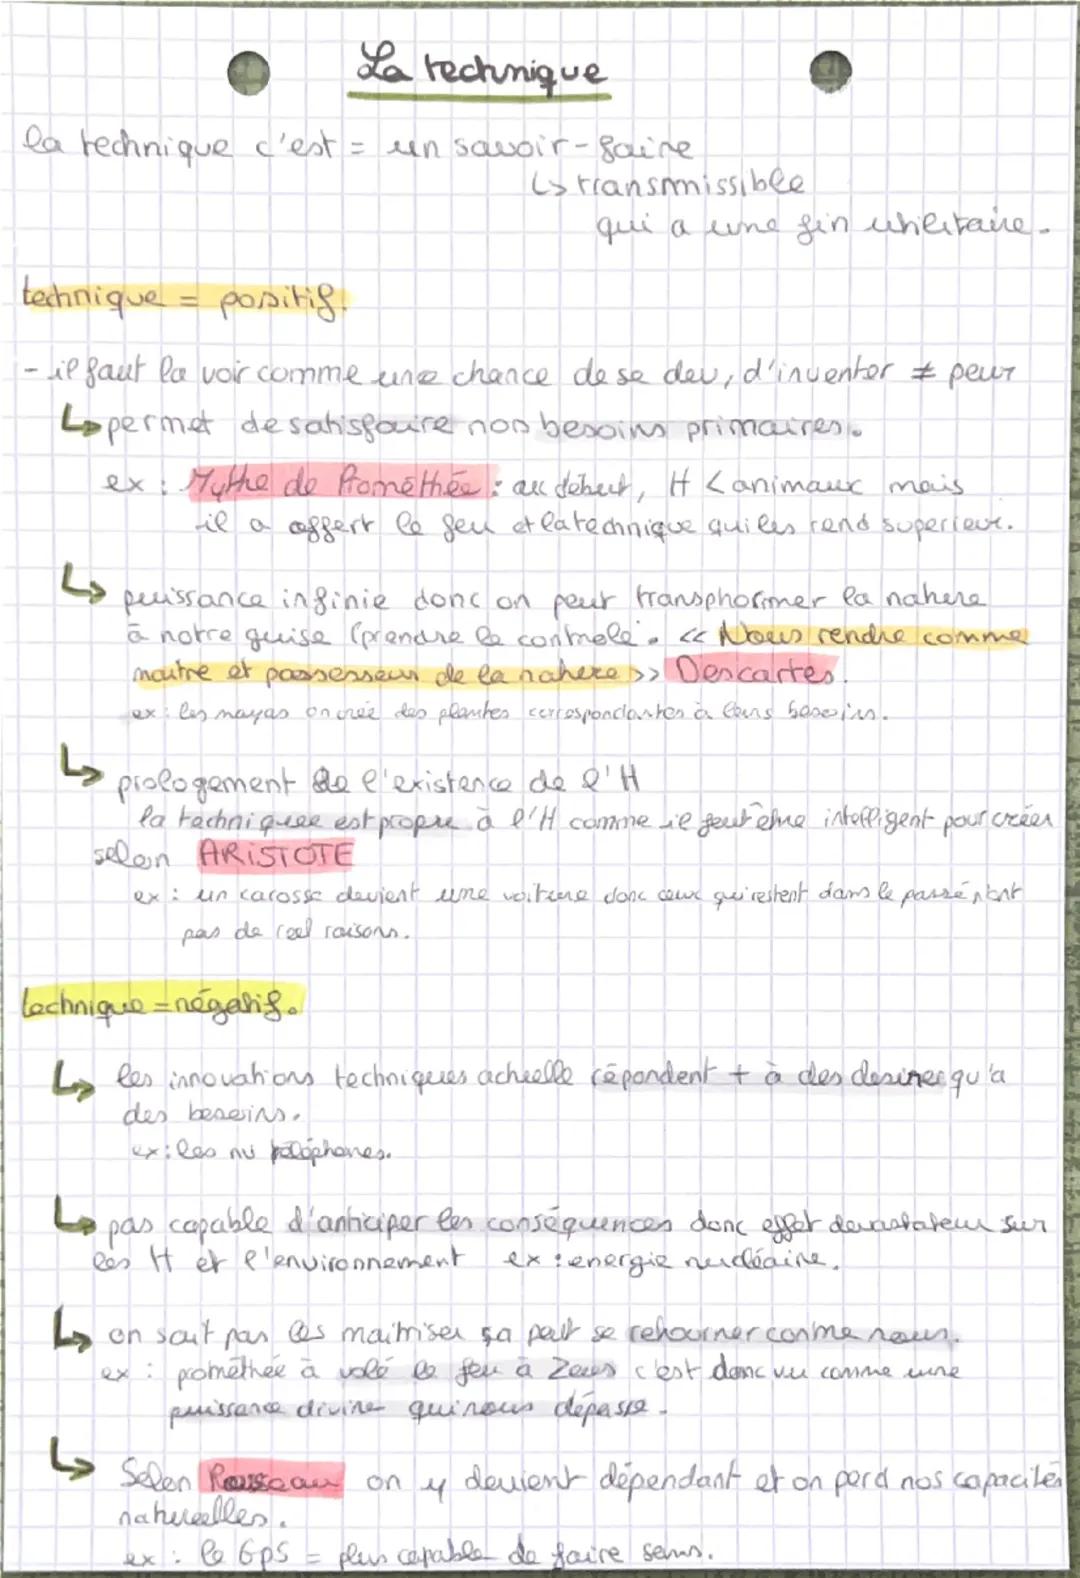 La technique
la technique c'est = un savoir-faire
↳ transmissible
qui a une fin utilitaire.
technique = positif.
- il faut la voir comme une chance de se dev, d'inventer ≠ peur
↳ permet de satisfaire nos besoins primaires.
ex : Mythe de Prométhée : au début, H < animaux mais
il a offert le feu et la technique qui les rend superieur.
↳ puissance infinie donc on peut transphormer la nature
à notre guise (prendre le contrôle. << Nous rendre comme
maître et possesseur de la nature >> Descartes.
ex : les mayas on créé des plantes correspondantes à leurs besoins.
↳ prologement de l'existence de l'H
la technique est propre à l'H comme il faut être intelligent pour créer
selon ARISTOTE
ex : un carosse devient une voiture donc ceux qui restent dans le passé n'ont
pas de reel raisons.
technique = négatif.
↳ les innovations techniques actuelle répondent + à des desires qu'a
des besoins.
ex : les téléphones.
↳ pas capable d'anticiper les conséquences donc effet devastateur sur
les H et l'environnement ex : energie nucléaire.
↳ on sait pas les maitriser ça peut se retourner contre nous.
ex : prométhée à volé le feu à Zeus c'est donc vu comme une
puissance divine qui nous dépasse.
↳ Selon Rousseau on y devient dépendant et on perd nos capacités
naturelles.
ex : le GPS = plus capable de faire sans.